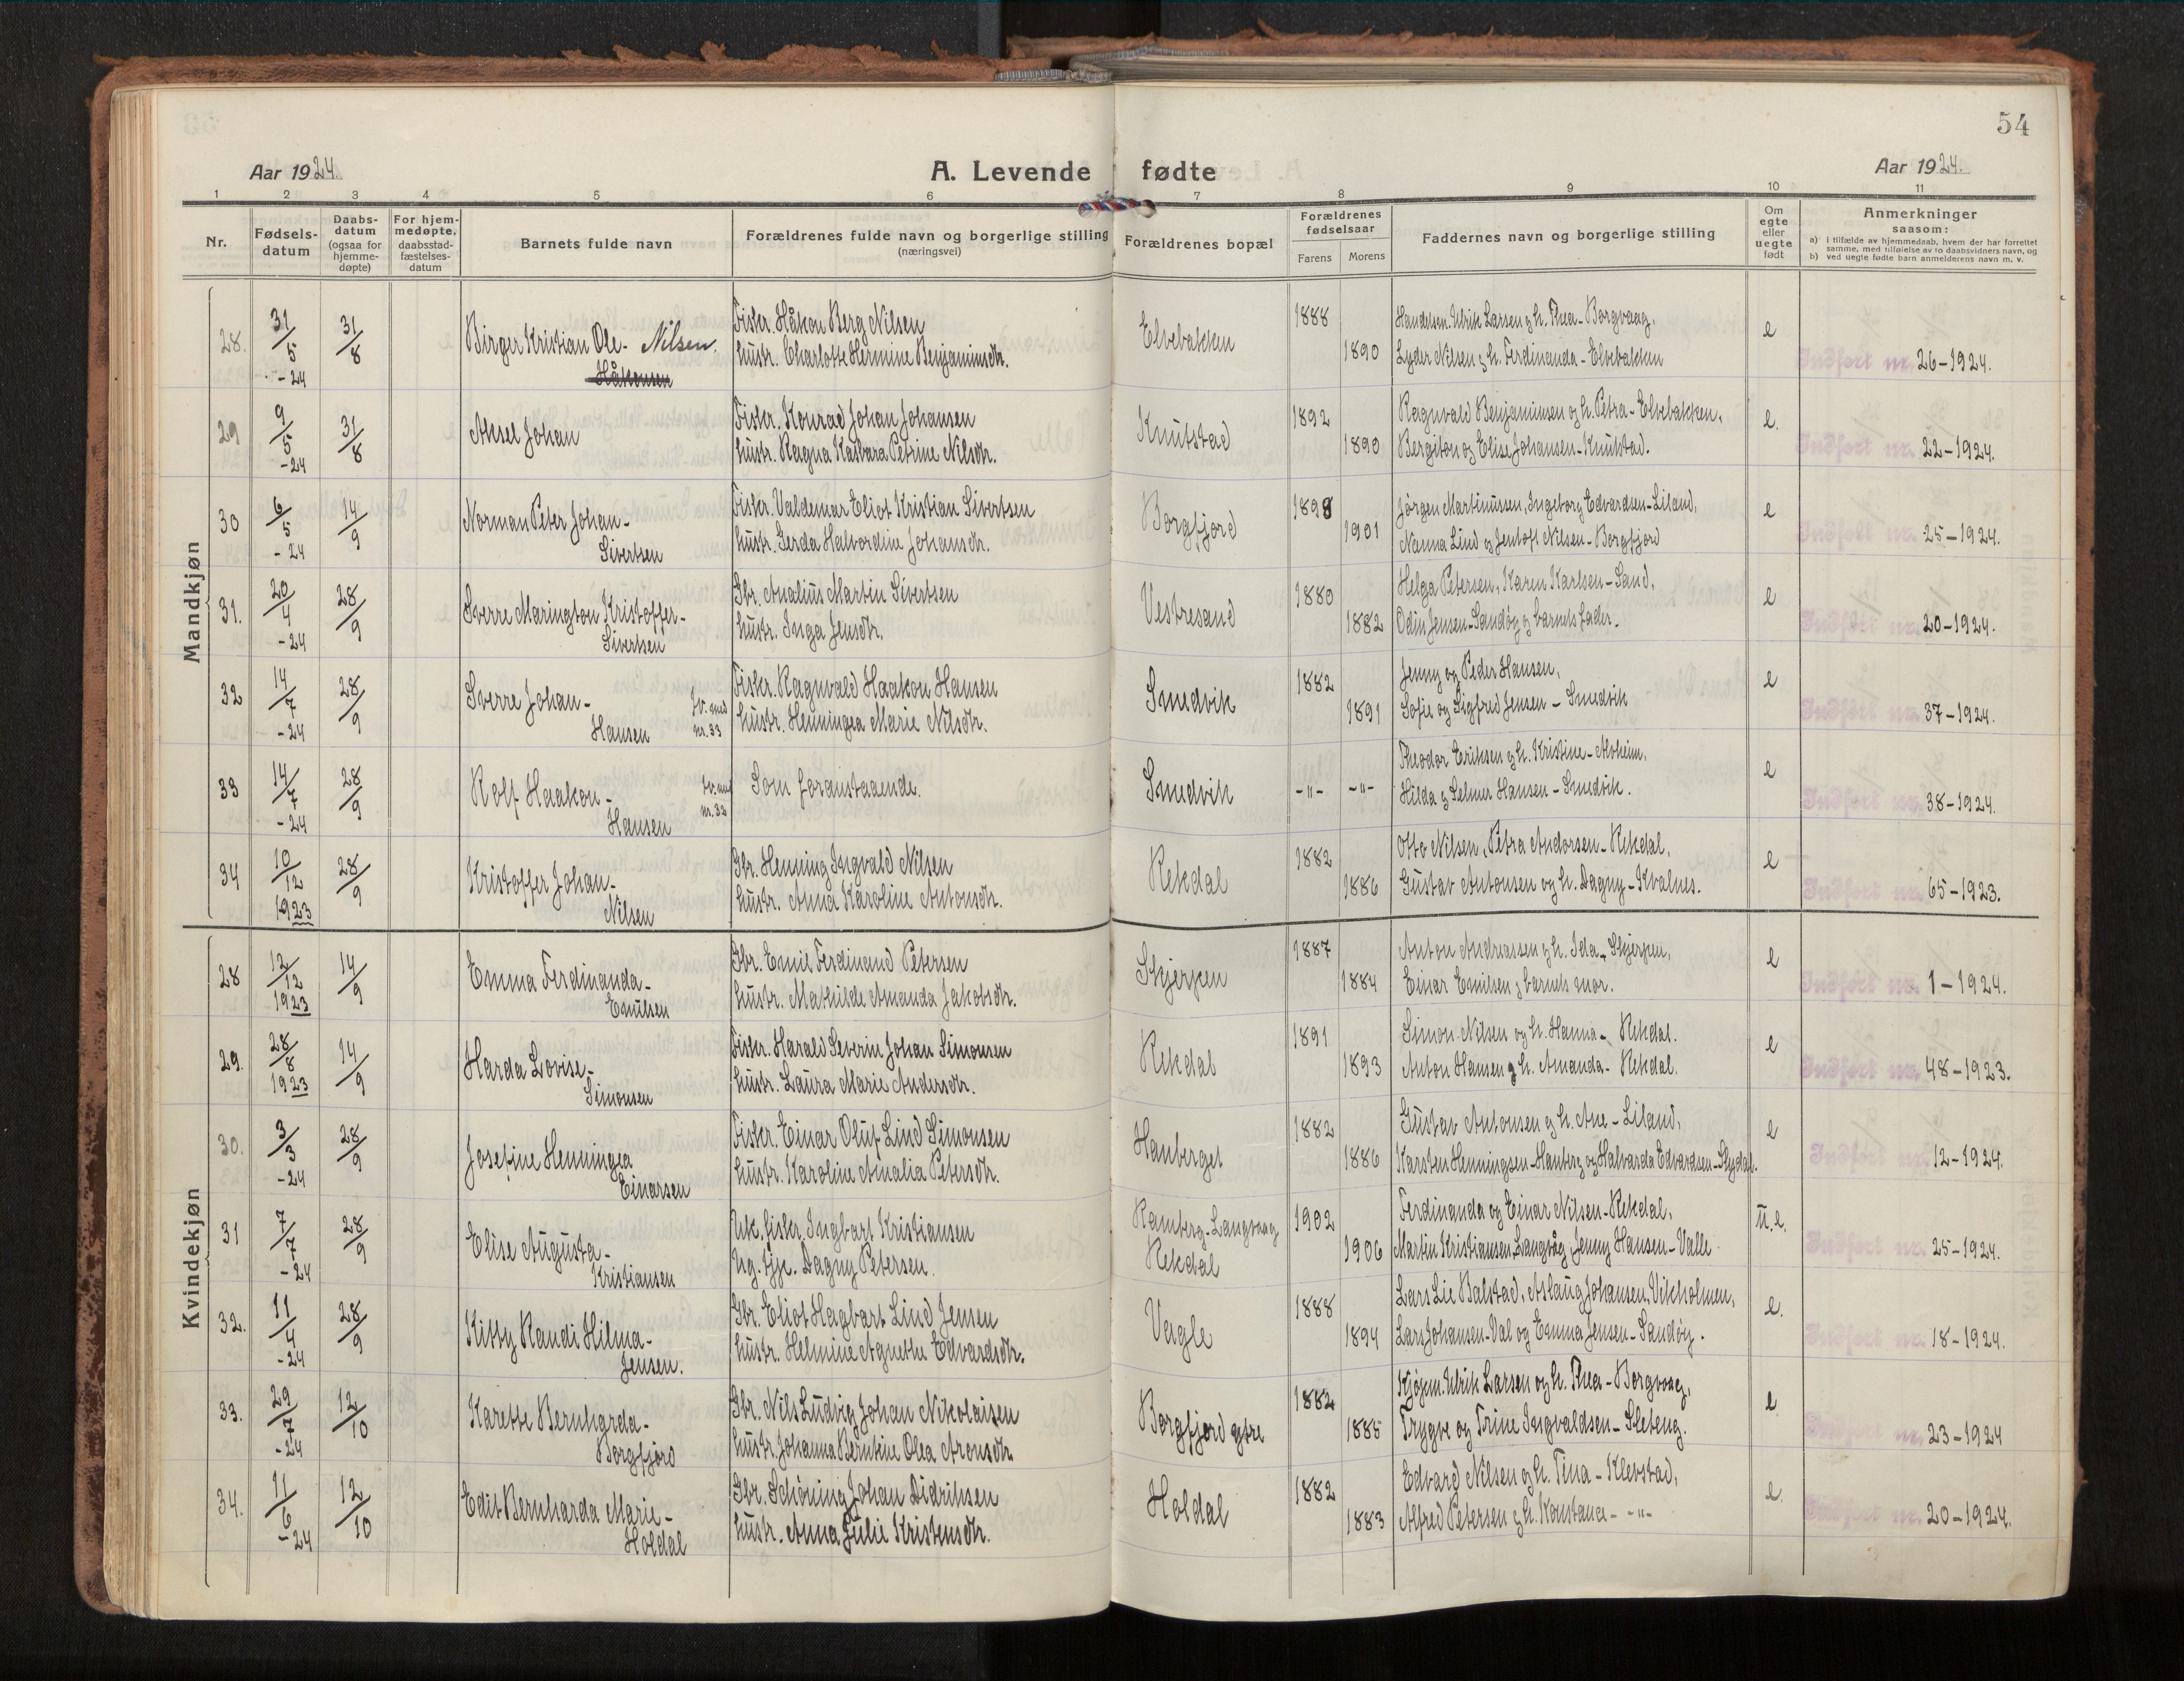 54
Aar 1924.
A. Levende fødte
Aar 1924.
1 2 3 4 5 6 7 8 9 10 11
Nr.
Fødsels-
datum
Daabs-
datum
(ogsaa for
hjemme-
døpte)
For hjem-
medøpte,
daabsstad-
fæstelses-
datum
Barnets fulde navn
Forældrenes fulde navn og borgerlige stilling
(næringsvei)
Forældrenes bopæl
Forældrenes
fødselsaar
Farens
Morens
Faddernes navn og borgerlige stilling
Om
egte
eller
uegte
født
Anmerkninger
saasom:
a) i tilfælde av hjemmedaab, hvem der har forrettet
samme, med tilføielse av to daabsvidners navn, og
b) ved uegte fødte barn anmelderens navn m. v.
Mandkjøn
28. 31/5 -24 31/8
Birger Kristian Ole- Nilsen.
Håkonsen
Fiskr. Håkon Berg Nilsen
hustr. Charlotte Hermine Benjaminsdtr.
Elvebakken
1888
1890
Handelsm. Ulrik Larsen og h. Thea - Borgvaag,
Lyder Nilsen og h. Ferdinanda - Elvebakken
e
Indført nr. 26-1924.
29 9/5 -24 31/8
Aksel Johan
Fiskr. Konrad Johan Johansen
hustr. Ragna Kasbara Petrine Nilsdtr.
Knutstad
1892
1890
Ragnvald Benjaminsen og h. Petra - Elvebakken,
Bergiton og Elise Johansen - Knutstad.
e.
Indført nr. 22-1924.
30 6/5 -24 14/9
Norman Peter Johan-
Sivertsen
Fiskr. Valdemar Eliot Kristian Sivertsen
hustr. Gerda Halvordine Johansdtr.
Borgfjord
1898
1901
Jørgen Martinussen, Ingeborg Edvardsen - Liland,
Nanna Lind og Jentoft Nilsen - Borgfjord
e
Indført nr. 25-1924.
31. 20/4 -24 28/9
Sverre Marington Kristoffer-
Sivertsen
Gbr. Analius Martin Sivertsen
hustr. Inga Jensdtr.
Vestresand
1880
1882
Helga Petersen, Karen Karlsen - Sand,
Odin Jensen - Sandøy og barnets fader.
e
Indført nr. 20-1924.
32 14/7 -24 28/9
Sverre Johan-
Hansen
tv. med
nr. 33
Fiskr. Ragnvald Haakon Hansen
hustr. Henningea Marie Nilsdtr.
Smedvik
1882
1891
Jenny og Peder Hansen,
Sofie og Sigfred Jensen - Smedvik
e
Indført nr. 37-1924.
33 14/7 -24 28/9
Rolf Haakon-
Hansen
tv. med
nr. 32
Som foranstaaende.
Smedvik
-"- -"-
Theodor Eriksen og h. Kristine - Alvheim,
Hilda og Selmer Hansen - Smedvik.
e
Indført nr. 38-1924.
34 10/12 1923 28/9
Kristoffer Johan-
Nilsen
Gbr. Henning Ingvald Nilsen
hustr. Anna Karoline Antonsdtr.
Rekdal
1882
1886
Otto Nilsen, Petra Andorsen - Rekdal,
Gustav Antonsen og h. Dagny - Kvalnes.
e
Indført nr. 65-1923.
Kvindekjøn
28 12/12 1923 14/9
Emma Ferdinanda-
Emilsen
Gbr. Emil Ferdinand Petersen
hustr. Mathilde Amanda Jakobsdtr.
Skjerpen
1887
1884
Anton Andreassen og h. Ida - Skjerpen,
Einar Emilsen og barnets mor.
e
Indført nr. 1-1924.
29. 28/8 1923 14/9
Harda Lovise-
Simonsen
Fiskr. Harald Severin Johan Simonsen
hustr. Laura Marie Andersdtr.
Rekdal
1891
1893
Simon Nilsen og h. Hanna - Rekdal.
Anton Hansen og h. Amanda - Rekdal.
e
Indført nr. 48-1923.
30. 3/3 -24 28/9
Josefine Henningea
Einarsen
Fiskr. Einar Oluf Lind Simonsen
hustr. Karoline Amalia Petersdtr.
Hanberget
1882
1886
Gustav Antonsen og h. Ane - Liland,
Karsten Henningsen - Hanberg og Halvarda Edvardsen - Slydal.
e
Indført nr. 12-1924.
31 7/7 -24 28/9
Elise Augusta-
Kristiansen
Uk. fiskr. Ingbart Kristiansen
Ug. tje. Dagny Petersen.
Ramberg - Langvaag
Rekdal
1902
1906
Ferdinanda og Einar Nilsen - Rekdal,
Martin Kristiansen, Langvåg, Jenny Hansen - Valle
u.e.
Indført nr. 25-1924.
32. 11/4 -24 28/9
Kitty Randi Hilma-
Jensen.
Gbr. Eliot Hagbart Lind Jensen
hustr. Helmine Agnethe Edvardsdtr.
Vagle
1888
1894
Lars Lie Balstad, Aslaug Johansen, Vikholmen,
Lars Johansen - Val og Emma Jensen - Sandøy.
e.
Indført nr. 18-1924.
33. 29/7 -24 12/10
Karette Bernharda-
Borgfjord
Gbr. Nils Ludvig Johan Nikolaisen
hustr. Johanna Berntine Olea Aronsdtr.
Borgfjord ytre
1882
1885
Kjøpm. Ulrik Larsen og h. Thea - Borgvaag,
Trygve og Trine Ingvaldsen - Sleteng.
e
Indført nr. 23-1924
34. 11/6 -24 12/10
Edit Bernharda Marie-
Holdal
Gbr. Schøning Johan Didriksen
hustr. Anna Julie Kristensdtr.
Holdal
1882
1883
Edvard Nilsen og h. Tina - Klevstad,
Alfred Petersen og h. Konstanse - -"-
e.
Indført nr. 20-1924.